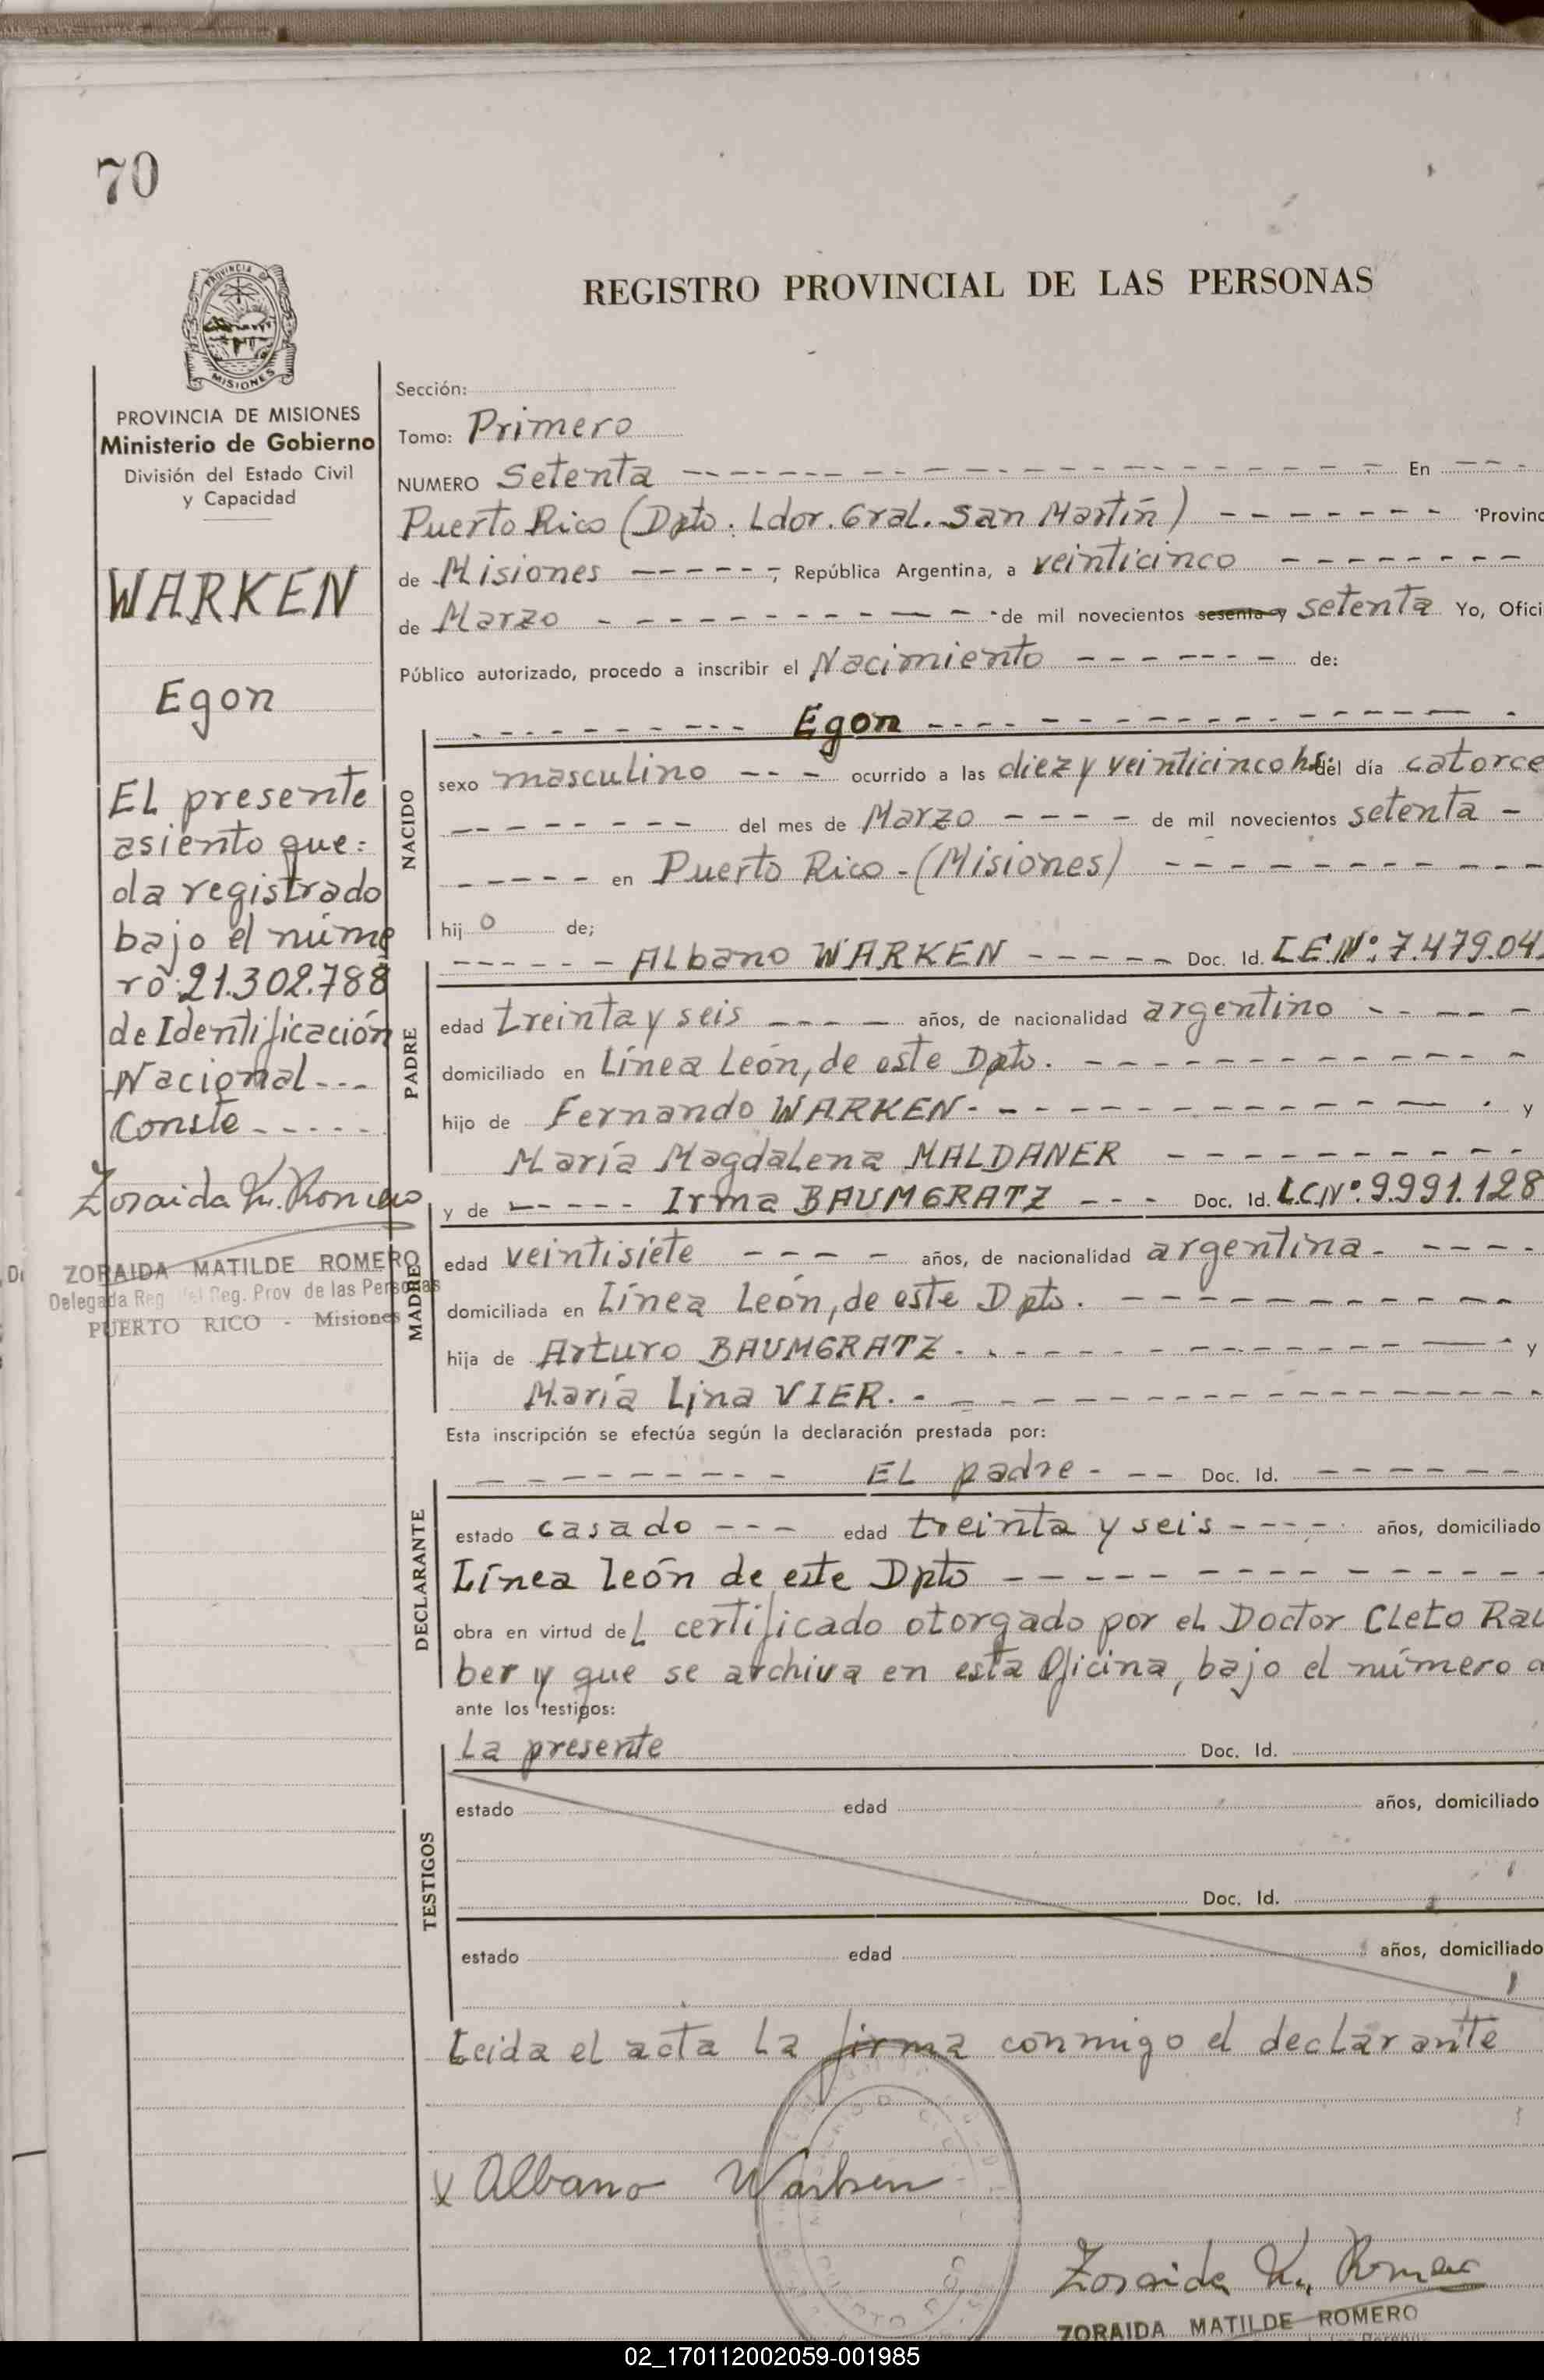 70
REGISTRO PROVINCIAL DE LAS PERSONAS
PROVINCIA DE MISIONES
Ministerio de Gobierno
División del Estado Civil
y Capacidad
WARKEN
Egon
El presente
asiento que=
da registrado
bajo el núme
ro 21.302.788
de Identificación
Nacional ---
Conste -----
Zoraida M. Romero
ZORAIDA MATILDE ROMERO
Delegada Reg. del Reg. Prov de las Personas
PUERTO RICO - Misiones
Sección:
Tomo: Primero
NUMERO Setenta En
Puerto Rico (Dpto. Ldor. Gral. San Martín) Provinc
de Misiones ------, República Argentina, a veinticinco
de Marzo de mil novecientos sesenta y setenta Yo, Ofici
Público autorizado, procedo a inscribir el Nacimiento de:
NACIDO
Egon
sexo masculino ocurrido a las diez y veinticinco hs. del día catorce
del mes de Marzo de mil novecientos setenta
en Puerto Rico - (Misiones)
hijo de;
PADRE
Albano WARKEN Doc. Id. L.E.Nº: 7.479.04
edad treinta y seis años, de nacionalidad argentino
domiciliado en Línea León, de este Dpto.
hijo de Fernando WARKEN y
María Magdalena MALDANER
MADRE
y de Irma BAUMGRATZ Doc. Id. L.C.Nº: 9.991.128
edad veintisiete años, de nacionalidad argentina
domiciliada en Línea León, de este Dpto.
hija de Arturo BAUMGRATZ y
María Lina VIER.
Esta inscripción se efectúa según la declaración prestada por:
DECLARANTE
El padre Doc. Id.
estado casado edad treinta y seis años, domiciliado
Línea León de este Dpto
obra en virtud del certificado otorgado por el Doctor Cleto Rau
ber y que se archiva en esta Oficina, bajo el número d
ante los testigos:
TESTIGOS
La presente Doc. Id.
estado edad años, domiciliado
Doc. Id.
estado edad años, domiciliado
Leida el acta la firma conmigo el declarante
x Albano Warken
Zoraida M. Romero
ZORAIDA MATILDE ROMERO
02_170112002059-001985